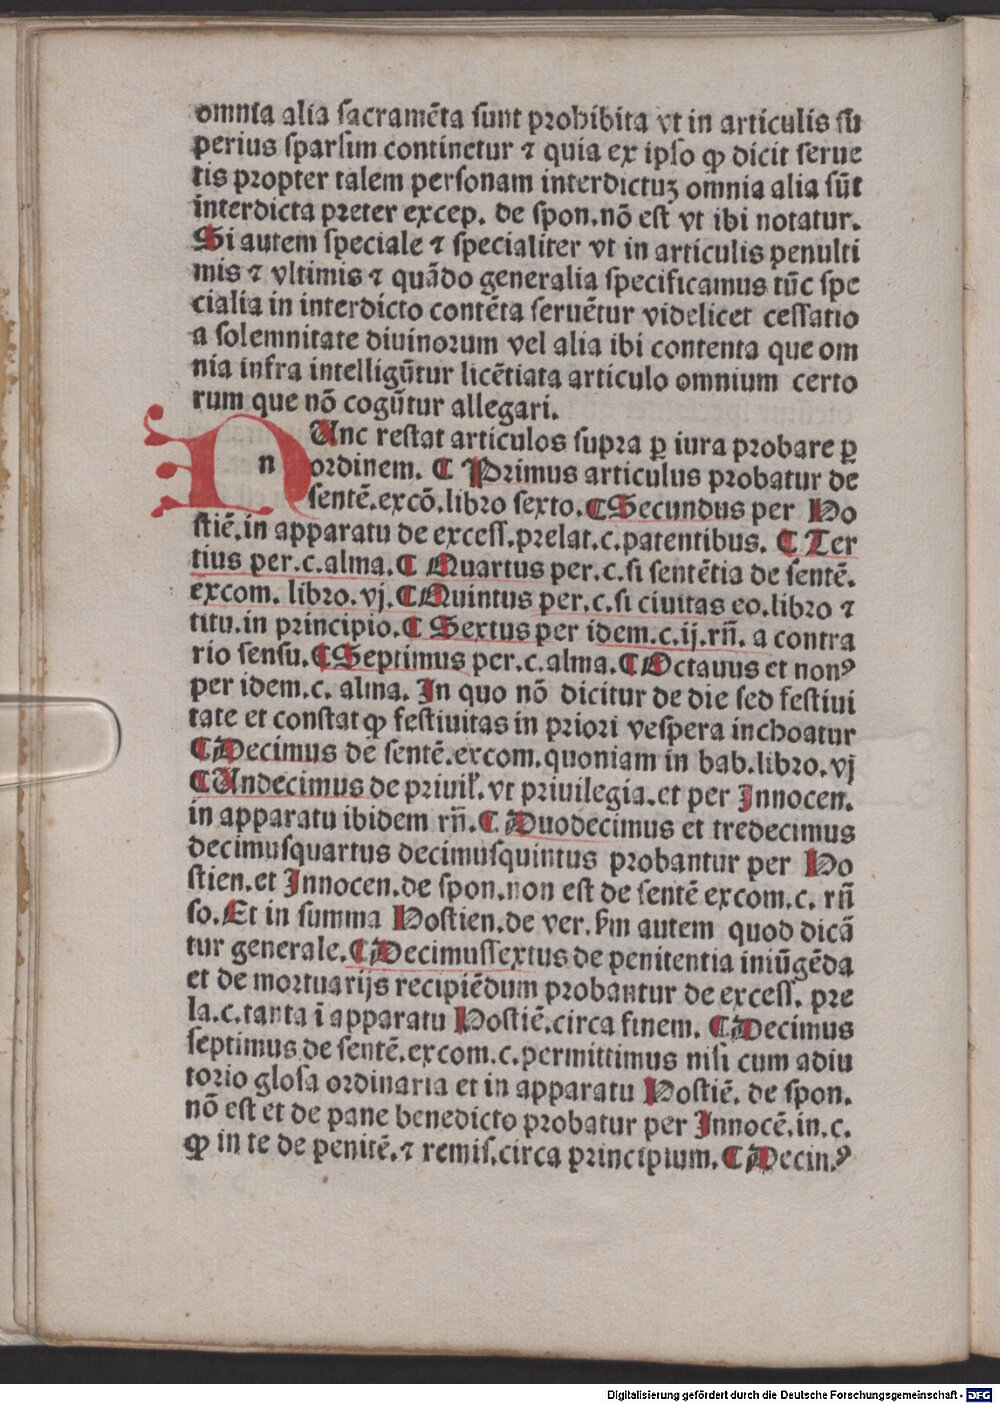 omnia alia sacramēta sunt prohibita vt in articulis sū
perius sparsim continetur ⁊ quia ex ipso ꝙ dicit serue
tis propter talem personam interdictuꝫ omnia alia sūt
interdicta preter excep. de spon.nō est vt ibi notatur.
Si autem speciale ⁊ specialiter vt in articulis penulti
mis ⁊ vltimis ⁊ quādo generalia specificamus tūc spe
cialia in interdicto contēta seruētur videlicet cessatio
a solemnitate diuinorum vel alia ibi contenta que om
nia infra intelligūtur licētiata articulo omnium certo
rum que nō cogūtur allegari.
NUnc restat articulos supra ꝑ iura probare ꝑ
n ordinem. ¶ Primus articulus probatur de
sentē.excō.libro sexto.¶Secundus per Ho
stiē.in apparatu de excess.prelat.c.patentibus. ¶ Ter
tius per.c.alma.¶ Quartus per.c.si sentētia de sentē.
excom. libro.vj.¶Quintus per.c.si ciuitas eo.libro ⁊
titu.in principio.¶ Sextus per idem.c.ij.rñ. a contra
rio sensu.¶Septimus per.c.alma.¶Octauus et nonꝰ
per idem.c. alma. In quo nō dicitur de die sed festiui
tate et constat ꝙ festiuitas in priori vespera inchoatur
¶Decimus de sentē.excom.quoniam in hab.libro.vj
¶Undecimus de priuil̄. vt priuilegia.et per Innocen.
in apparatu ibidem rñ.¶ Duodecimus et tredecimus
decimusquartus decimusquintus probantur per Ho
stien.et Innocen.de spon.non est de sentē excom.c. rñ
so.Et in summa Hostien.de ver. ẜm autem quod dicā
tur generale.¶Decimussextus de penitentia iniūgēda
et de mortuarijs recipiēdum probantur de excess. pre
la.c.tanta ī apparatu Hostiē.circa finem. ¶Decimus
septimus de sentē.excom.c.permittimus nisi cum adiu
torio glosa ordinaria et in apparatu Hostiē. de spon.
nō est et de pane benedicto probatur per Innocē.in.c.
ꝙ in te de penitē.⁊ remis.circa principium.¶Decin.ꝰ
Digitalisierung gefördert durch die Deutsche Forschungsgemeinschaft - DFG